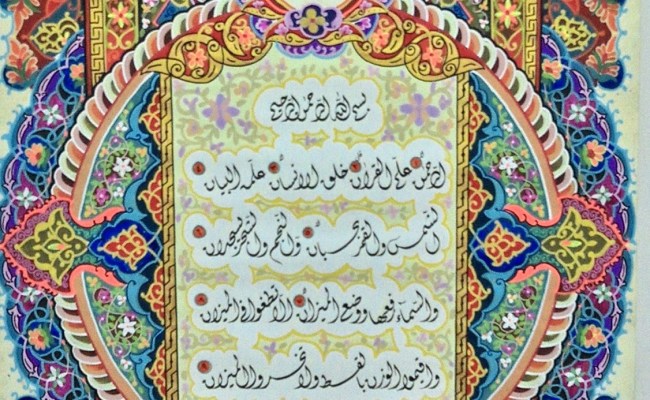 بسم الله الرحمن الرحيم
الرحمن ١ علم القرآن ٢ خلق الإنسان ٣ علمه البيان ٤
الشمس والقمر بحسبان ٥ والنجم والشجر يسجدان ٦
والسماء رفعها ووضع الميزان ٧ ألا تطغوا في الميزان ٨
وأقيموا الوزن بالقسط ولا تخسروا الميزان ٩